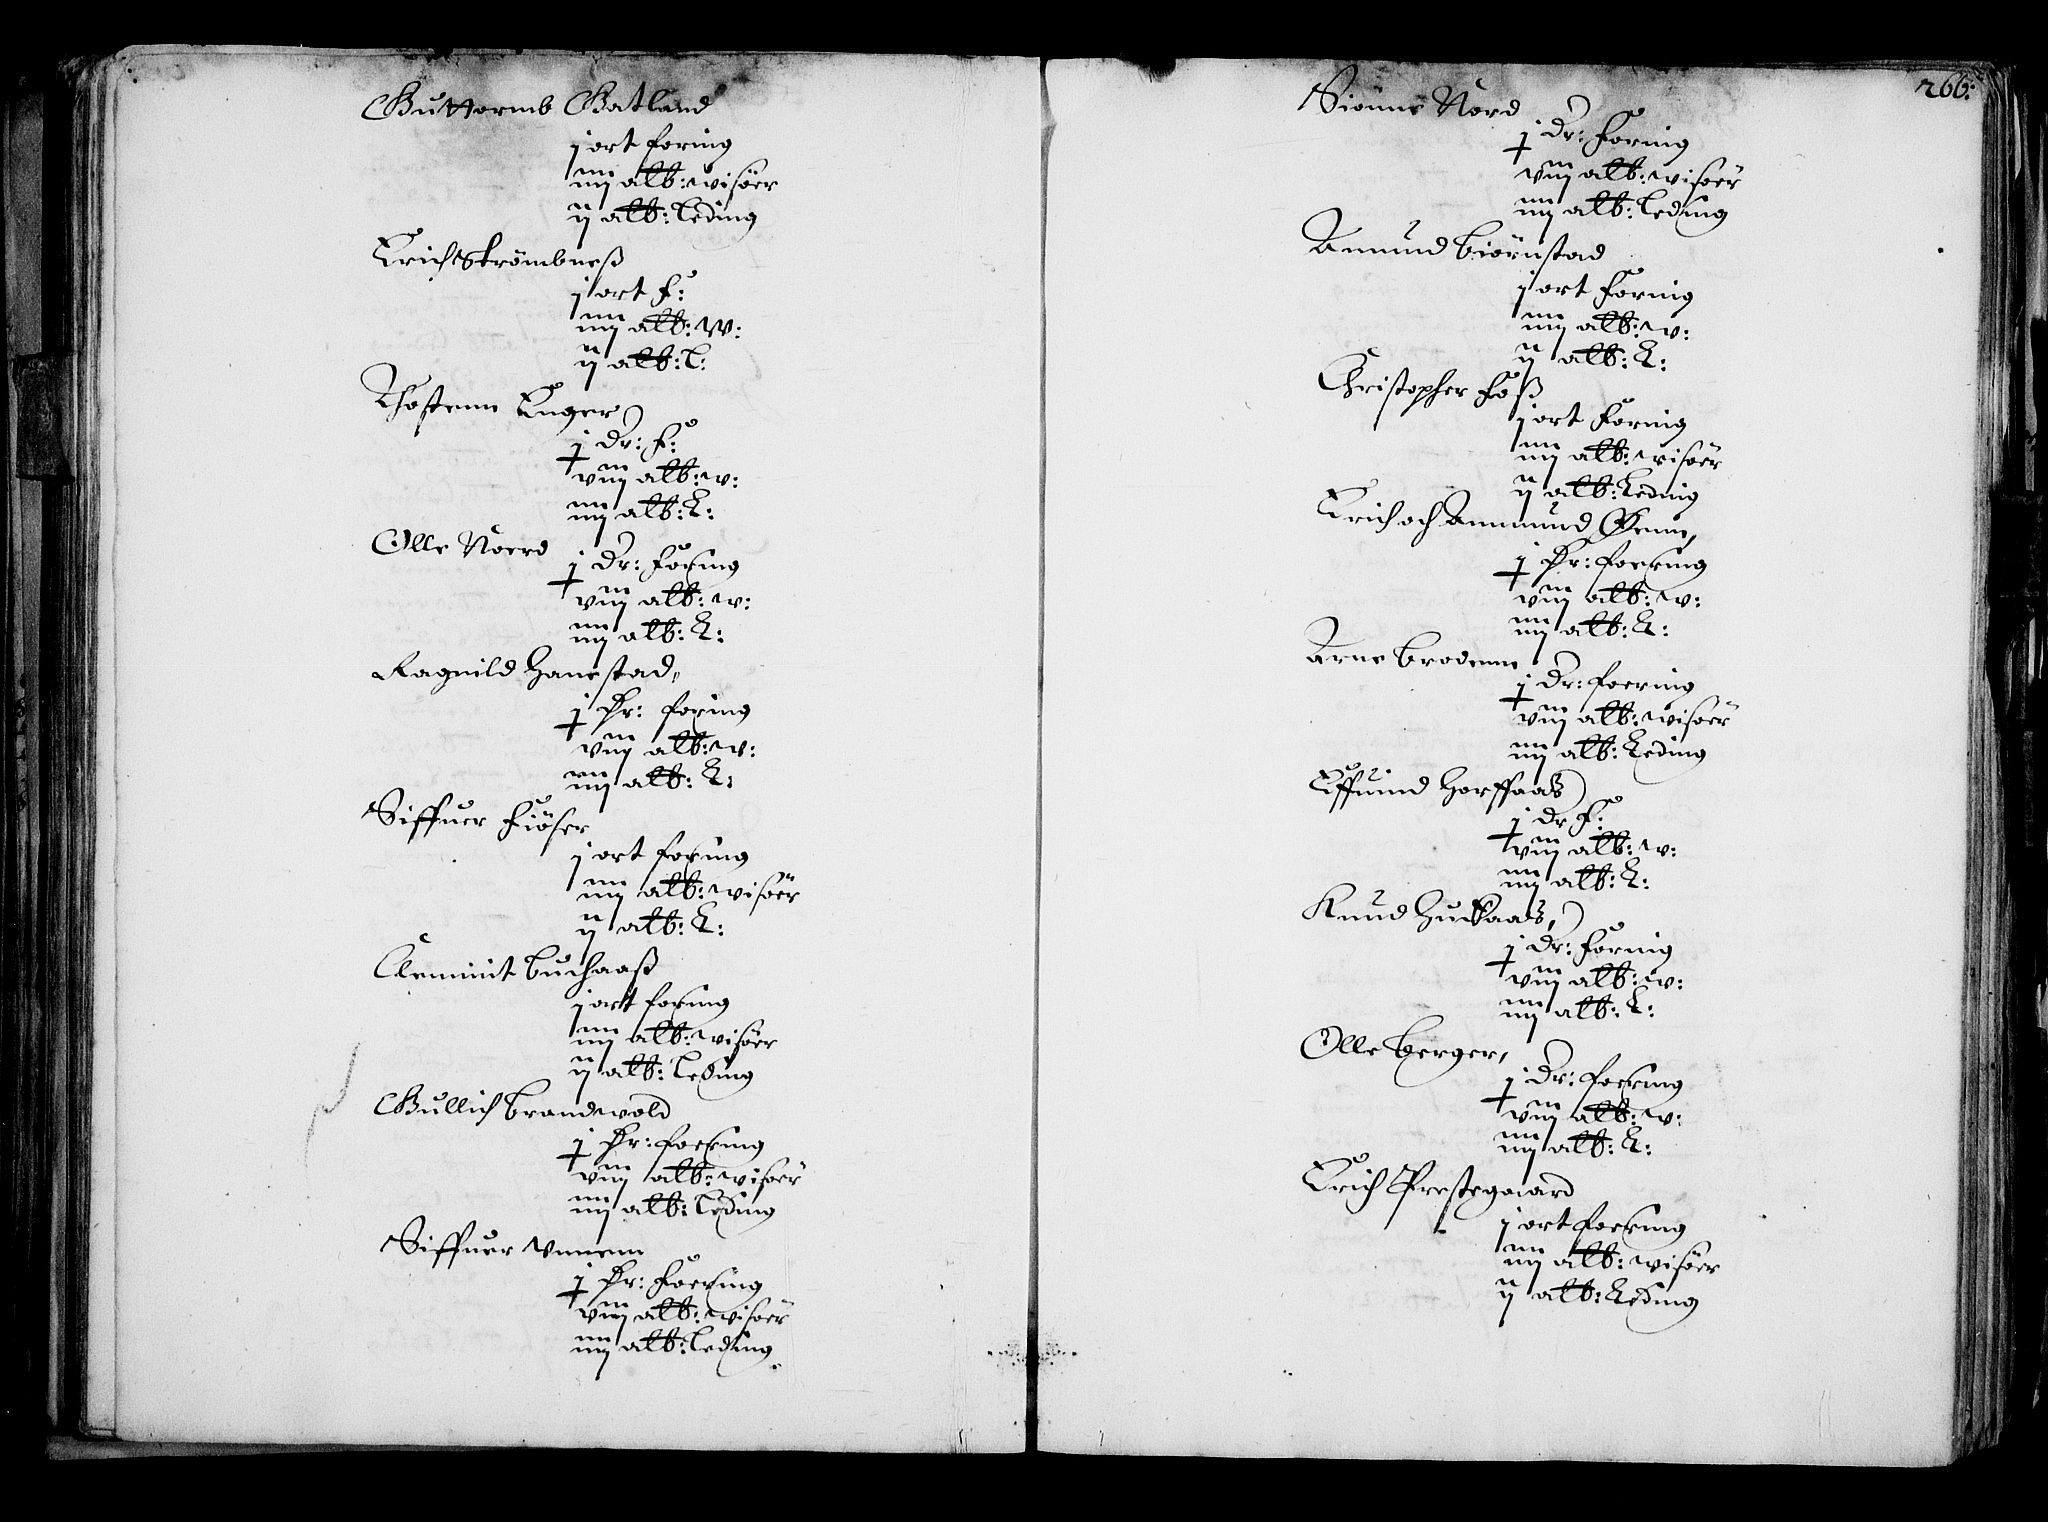 Guttormb Gatland
j ort foring
iiij alb: wisöer
ij alb: leding
Erich Strömbneß
j ort F:
iiij alb: W:
ij alb: l:
Thostenn Enger
j Dr: F:
viij alb: v:
iiij alb: L:
Olle Noerd
j Dr: Foring
viij alb: v:
iiij alb: L:
Ragnild Hanestad,
j Hr: foring
viij alb: v:
iiij alb: L:
Siffuer Fiöser
j ort foring
iiij alb: wisöer
ij alb: L:
Clemmit buchaaß
j ort foring
iiij alb: wisöer
ij alb: Leding
Gullich brandwold
j Hr: foering
viij alb: wisoer
iiij alb: leding
Siffuer Vnnenn
j Hr: Foering
viij alb: wisöer
iiij alb: leding
266:
Siönne Nord
j Dr: Foring
viij alb: wisöer
iiij alb: leding
Amund biörnstad
j ort Foring
iiij alb: v:
ij alb: L:
Christopher Foß
j ort Foring
iiij alb: wisöer
ij alb: Leding
Erich och Ammund
j Hr: foering
viij alb: v:
iiij alb: L:
Arne brodenn
j Dr: foering
viij alb: wisöer
iiij alb: Leding
Effuind Horffaas
j Dr F:
viij alb: v:
iiij alb: L:
Knud Huckaas,
j Dr: Foring
viij alb: v:
iiij alb: L:
Olle berger,
j Dr: foering
viij alb: v:
iiij alb: L:
Erich Prestegaard
j ort foering
iiij alb: wisöer
ij alb: Leding